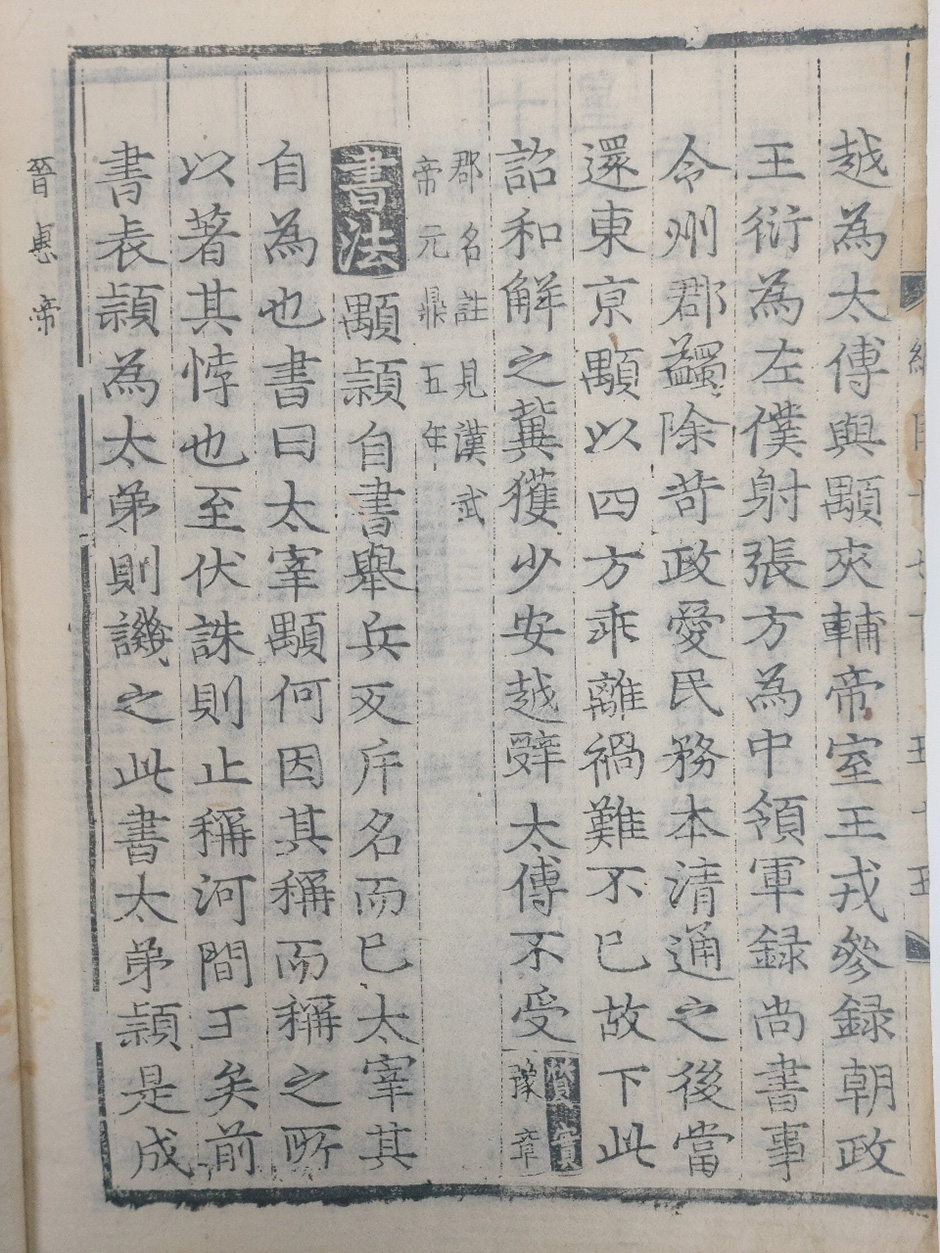 越為太傅與顒夾輔帝室王戎參録朝政
王衍為左僕射張方為中領軍録尚書事
令州郡蠲除苛政愛民務本清通之後當
還東京顒以四方乖離禍難不已故下此
詔和解之冀獲少安越辭太傅不受 質實 豫章
郡名註見漢武
帝元鼎五年
書法 顒頴自書舉兵反斥名而已太宰其
自為也書曰太宰顒何因其稱而稱之所
以著其悖也至伏誅則止稱河間王矣前
書表頴為太弟則譏之此書太弟頴是成
晉惠帝